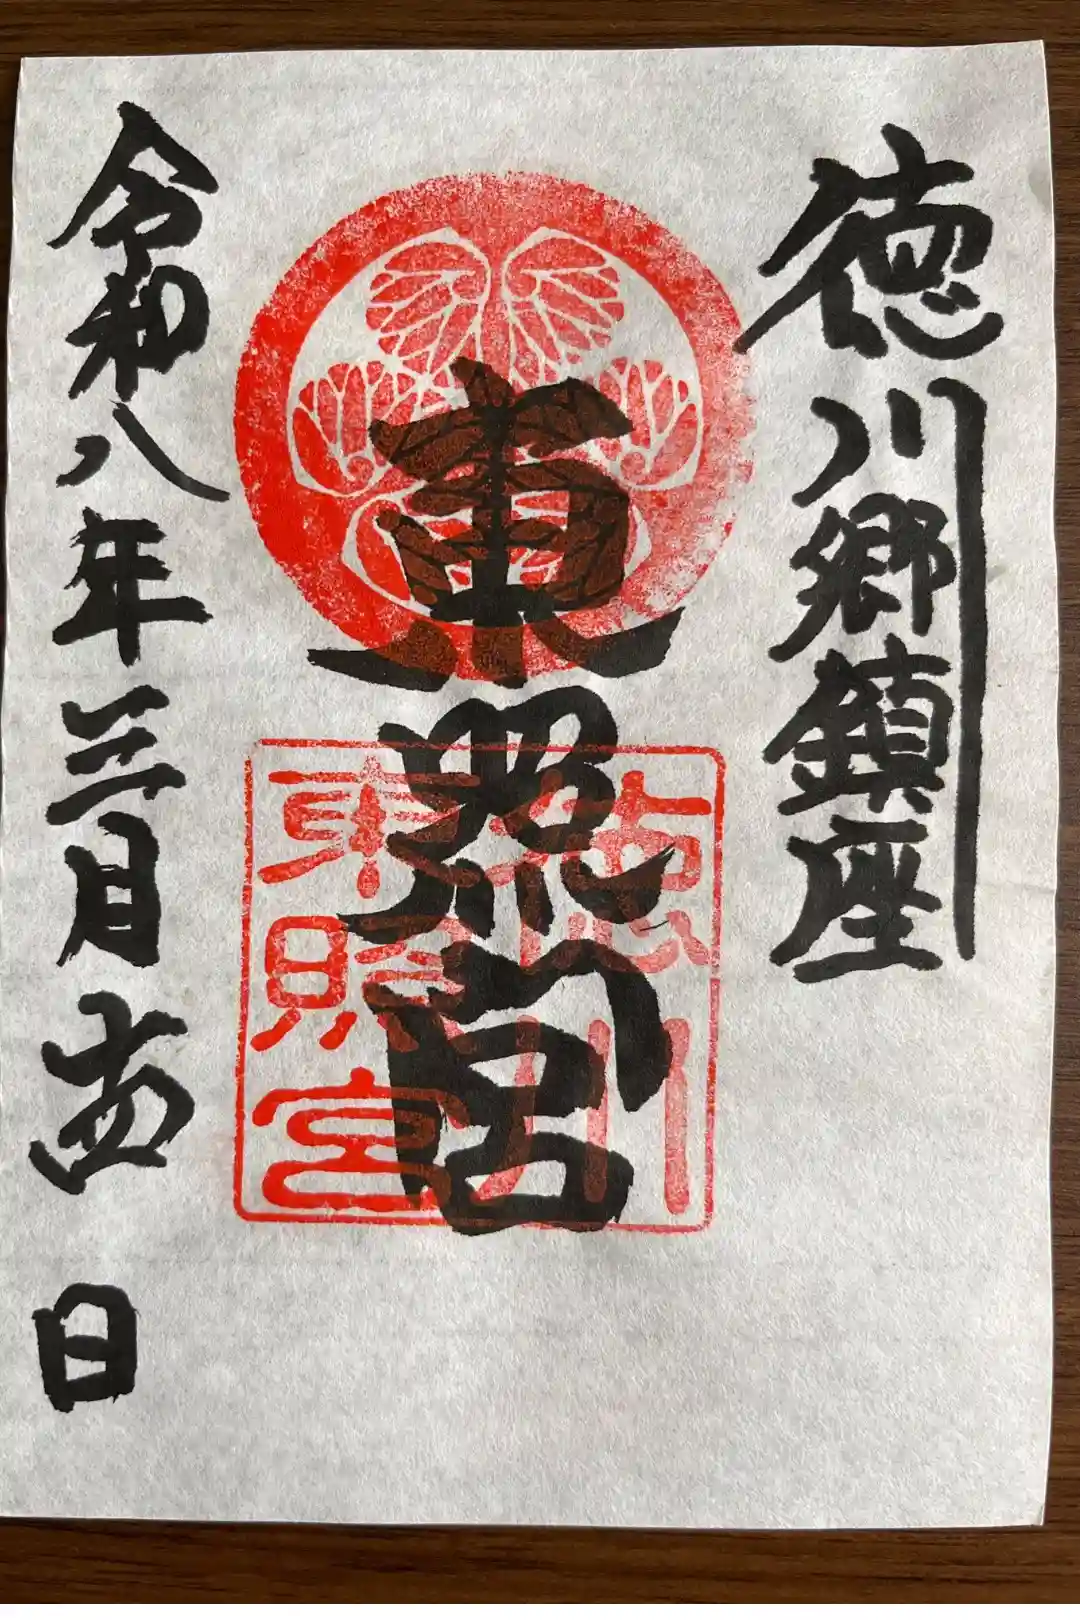 徳川郷鎮座
東照宮
徳川
東照宮
令和八年三月 日